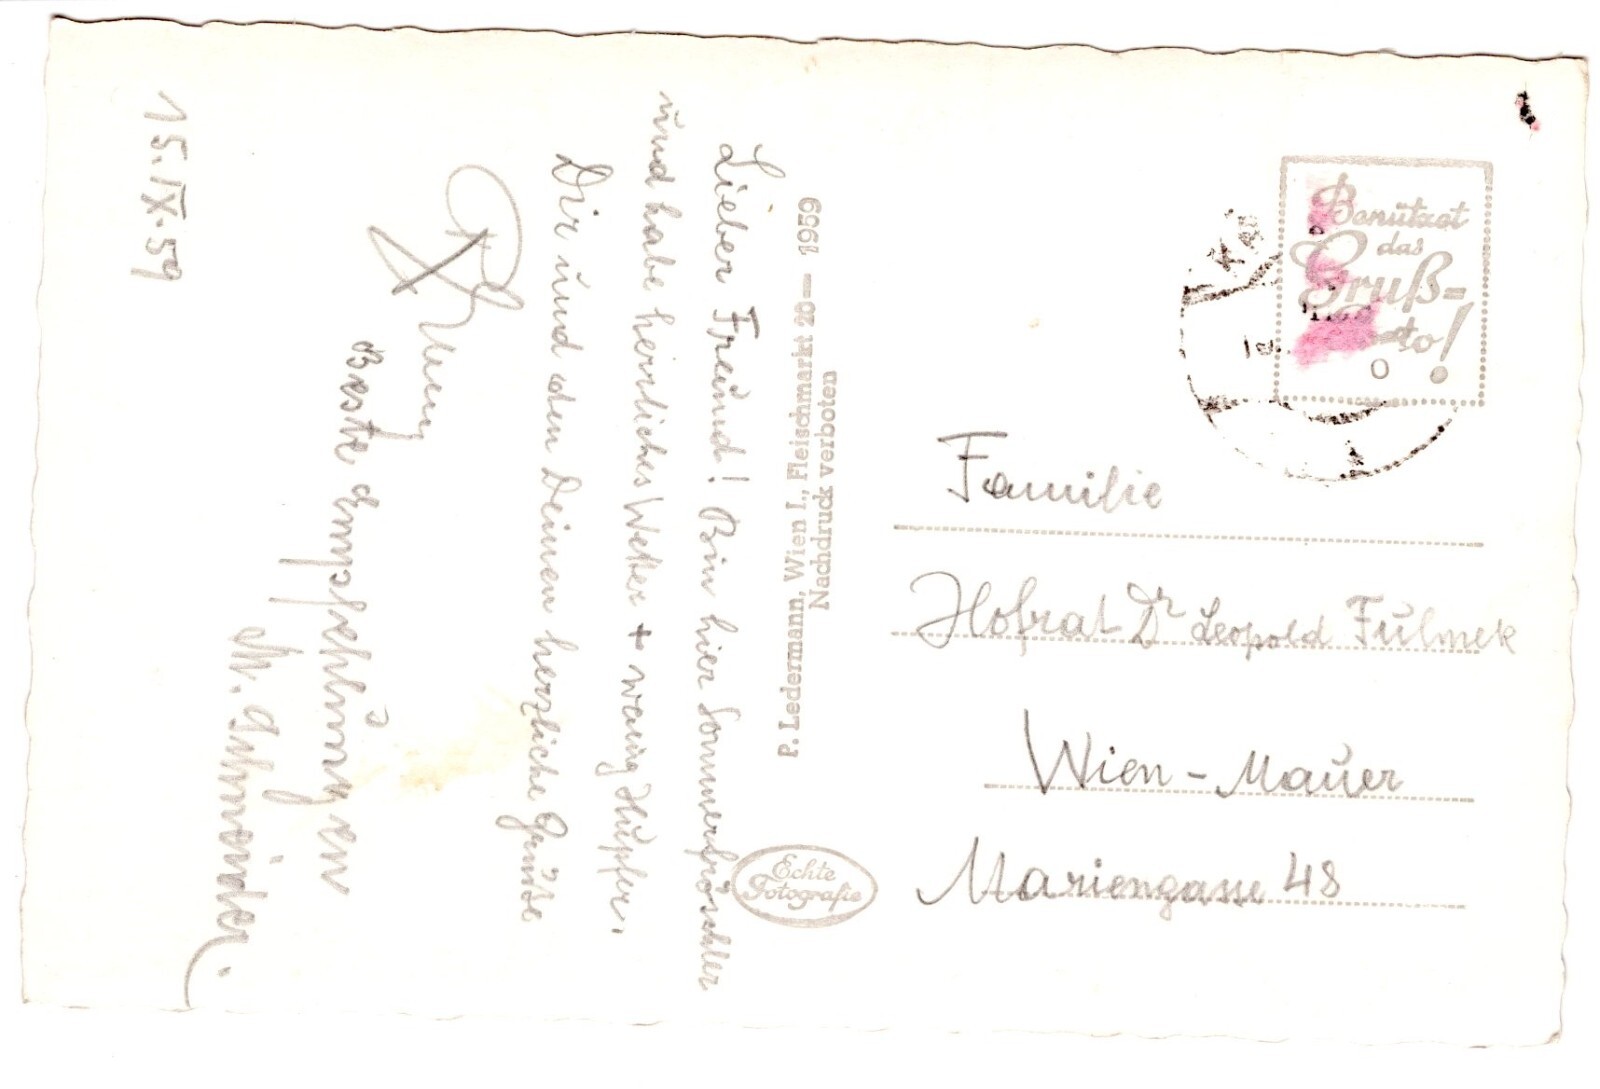 15.IX.59
Lieber Freund! Bin hier Sommerfrischler
und habe herrliches Wetter + wenig Hüpfer.
Dir und den Deinen herzliche Grüße
Beste Empfehlungen
M. Schneider.
P. Ledermann, Wien I., Fleischmarkt 20— 1959
Nachdruck verboten
Echte
Fotografie
Benützet
das
Gruß-
!
Familie
Hofrat Dr Leopold Fulmek
Wien - Mauer
Mariengasse 48